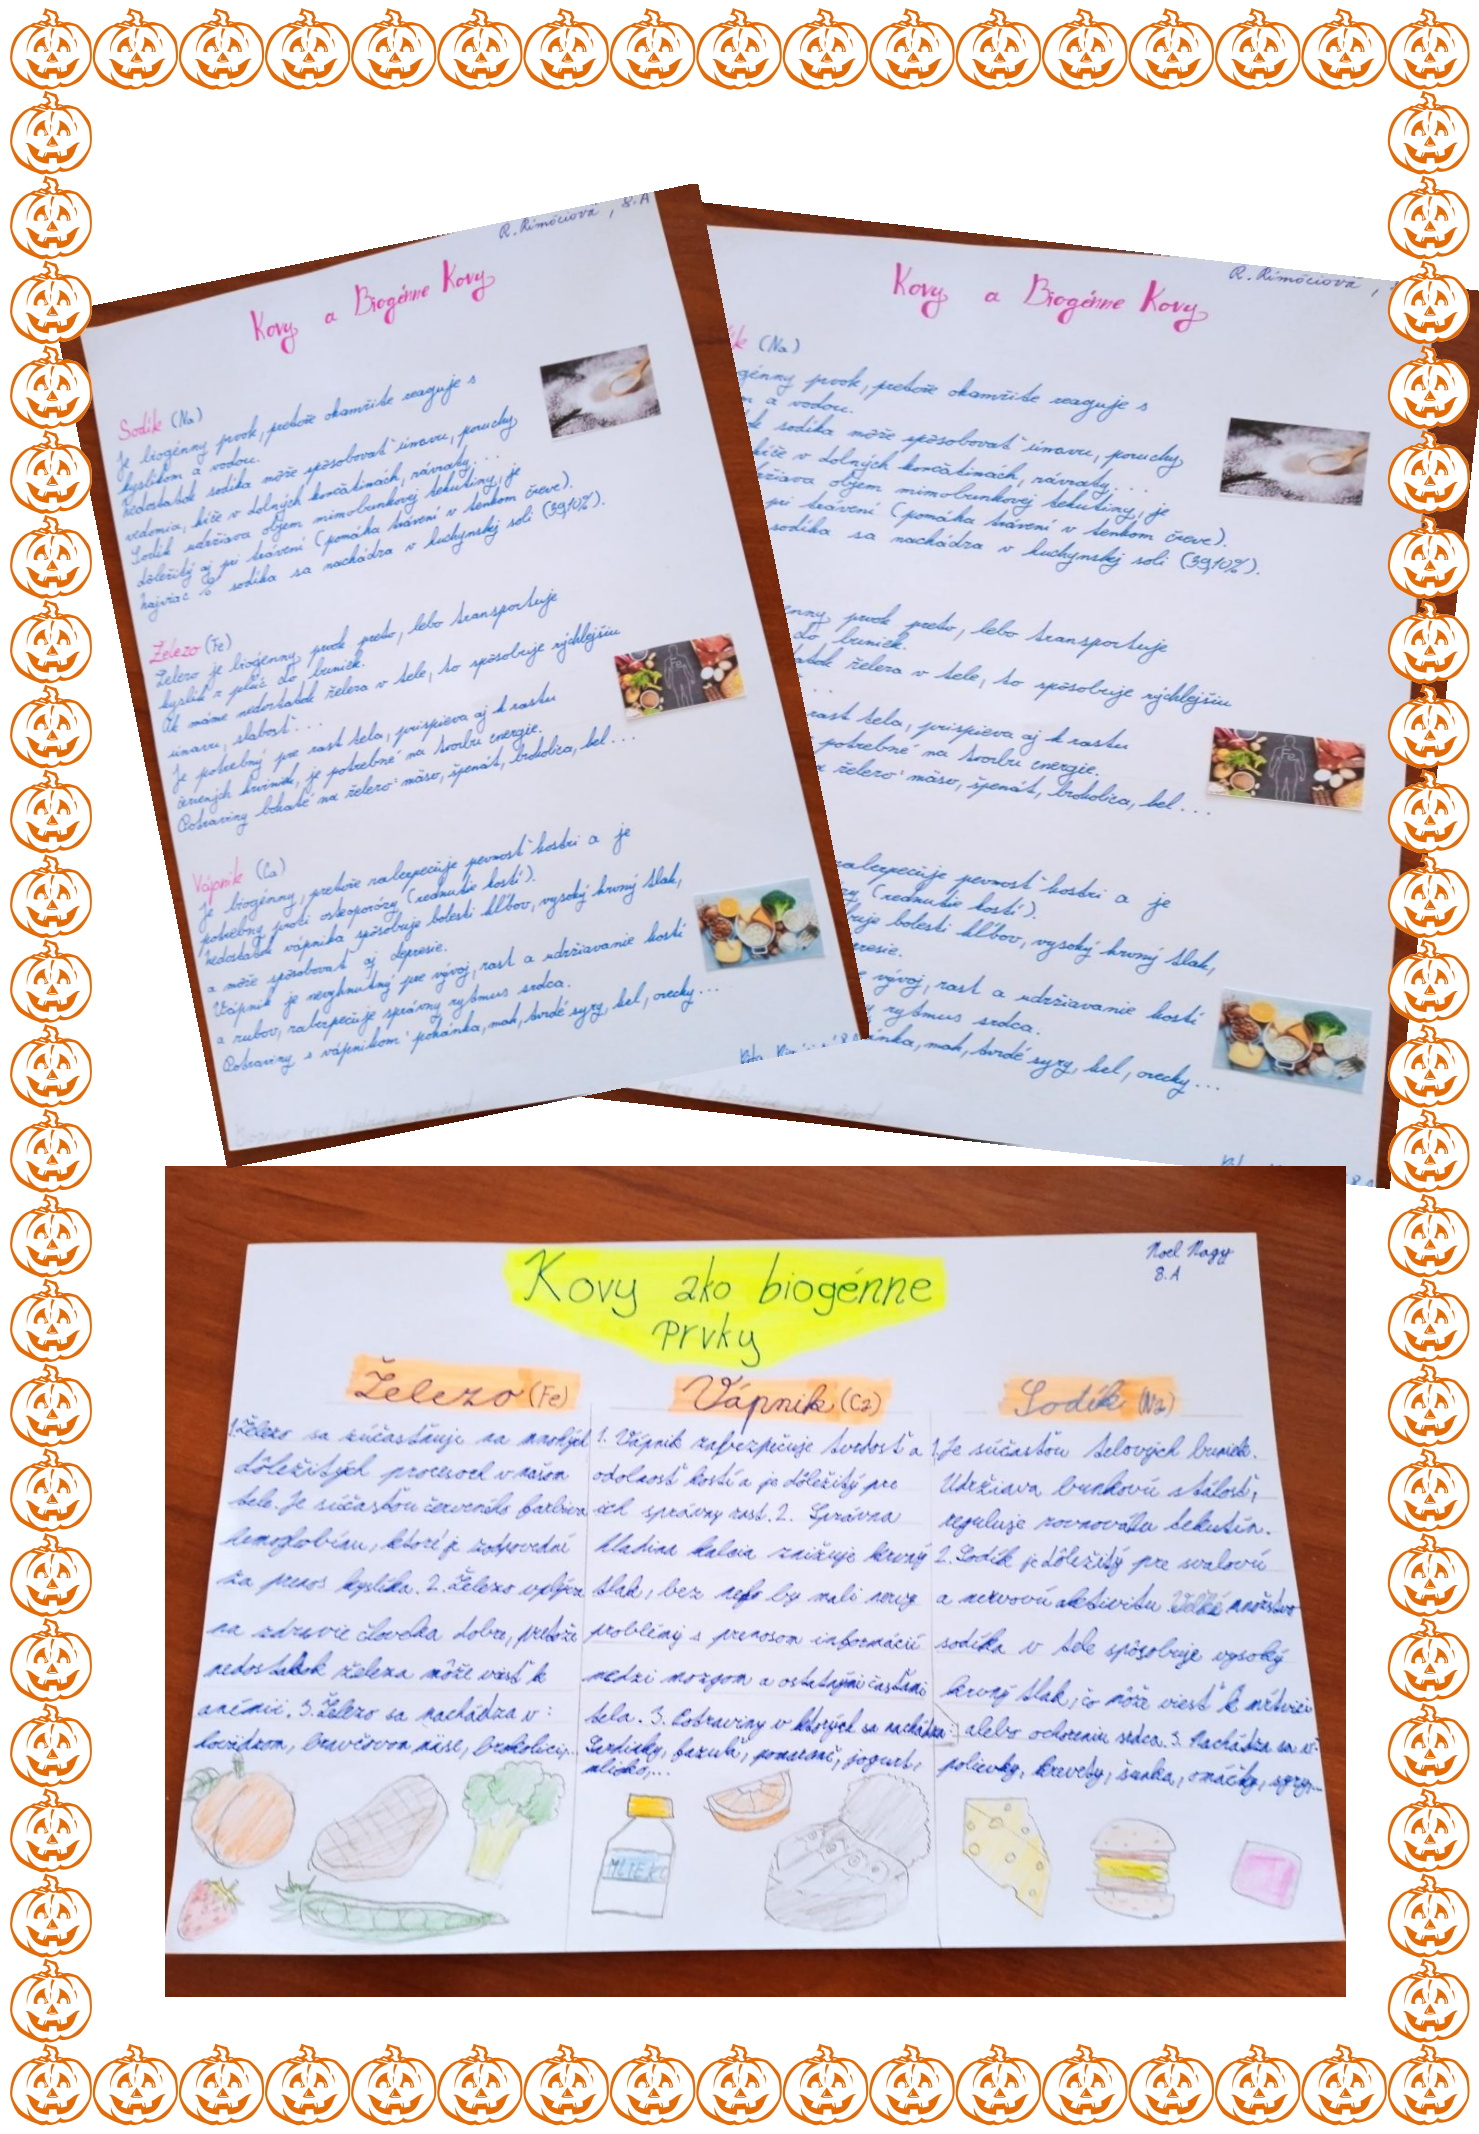 R. Rimóciová, 8.A
Kovy a Biogénne Kovy
Sodík (Na)
Je biogénny prvok, pretože okamžite reaguje s
kyslíkom a vodou.
Nedostatok sodíka môže spôsobovať únavu, poruchy
vedomia, kŕče v dolných končatinách, návraty...
Sodík udržiava objem mimobunkovej tekutiny, je
dôležitý aj pri trávení (pomáha trávení v tenkom čreve).
Najviac % sodíka sa nachádza v kuchynskej soli (39,10%).
Železo (Fe)
Železo je biogénny prvok preto, lebo transportuje
kyslík z pľúc do buniek.
Ak máme nedostatok železa v tele, to spôsobuje rýchlejšiu
únavu, slabosť...
Je potrebný pre rast tela, prispieva aj k rastu
červených krviniek, je potrebné na tvorbu energie.
Potraviny bohaté na železo: mäso, špenát, brokolica, kel...
Vápnik (Ca)
Je biogénny, pretože zabezpečuje pevnosť kostri a je
potrebný proti osteoporózy (rednutie kostí).
Nedostatok vápnika spôsobuje bolesti kĺbov, vysoký krvný tlak,
a môže spôsobovať aj depresie.
Vápnik je nevyhnutný pre vývoj, rast a udržiavanie kostí
a zubov, zabezpečuje správny rytmus srdca.
Potraviny s vápnikom: pohánka, mak, tvrdé syry, kel, orechy...
R. Rimóciová,
Kovy a Biogénne Kovy
(Na)
prvok, pretože okamžite reaguje s
a vodou.
sodíka môže spôsobovať únavu, poruchy
v dolných končatinách, návraty...
objem mimobunkovej tekutiny, je
pri trávení (pomáha trávení v tenkom čreve).
sodíka sa nachádza v kuchynskej soli (39,10%).
prvok preto, lebo transportuje
do buniek.
železa v tele, to spôsobuje rýchlejšiu
...
rast tela, prispieva aj k rastu
potrebné na tvorbu energie.
železo: mäso, špenát, brokolica, kel...
zabezpečuje pevnosť kostri a je
(rednutie kostí).
bolesti kĺbov, vysoký krvný tlak,
vývoj, rast a udržiavanie kostí
rytmus srdca.
mak, tvrdé syry, kel, orechy...
Noel Nagy
8.A
Kovy ako biogénne
prvky
Železo (Fe)
1. Železo sa zúčastňuje na mnohých
dôležitých procesoch v našom
tele. Je súčasťou červeného farbiva
hemoglobínu, ktoré je zodpovedné
za prenos kyslíka. 2. Železo vplýva
na zdravie človeka dobre, pretože
nedostatok železa môže viesť k
anémii. 3. Železo sa nachádza v:
hovädzom, bravčovom mäse, brokolici,...
Vápnik (Ca)
1. Vápnik zabezpečuje tvrdosť a
odolnosť kostí a je dôležitý pre
ich správny rast. 2. Správna
hladina kalcia znižuje krvný
tlak, bez neho by mali nervy
problémy s prenosom informácií
medzi mozgom a ostatnými časťami
tela. 3. Potraviny v ktorých sa nachádza:
Sardinky, fazuľa, pomaranč, jogurt,
mlieko,...
MLIEKO
Sodík (Na)
1. Je súčasťou telových buniek.
Udržiava bunkovú stálosť,
reguluje rovnováhu tekutín.
2. Sodík je dôležitý pre svalovú
a nervovú aktivitu. Veľké množstvo
sodíka v tele spôsobuje vysoký
krvný tlak, čo môže viesť k mŕtvici
alebo ochoreniu srdca. 3. Nachádza sa v:
polievky, krevety, šunka, omáčky, syry,...